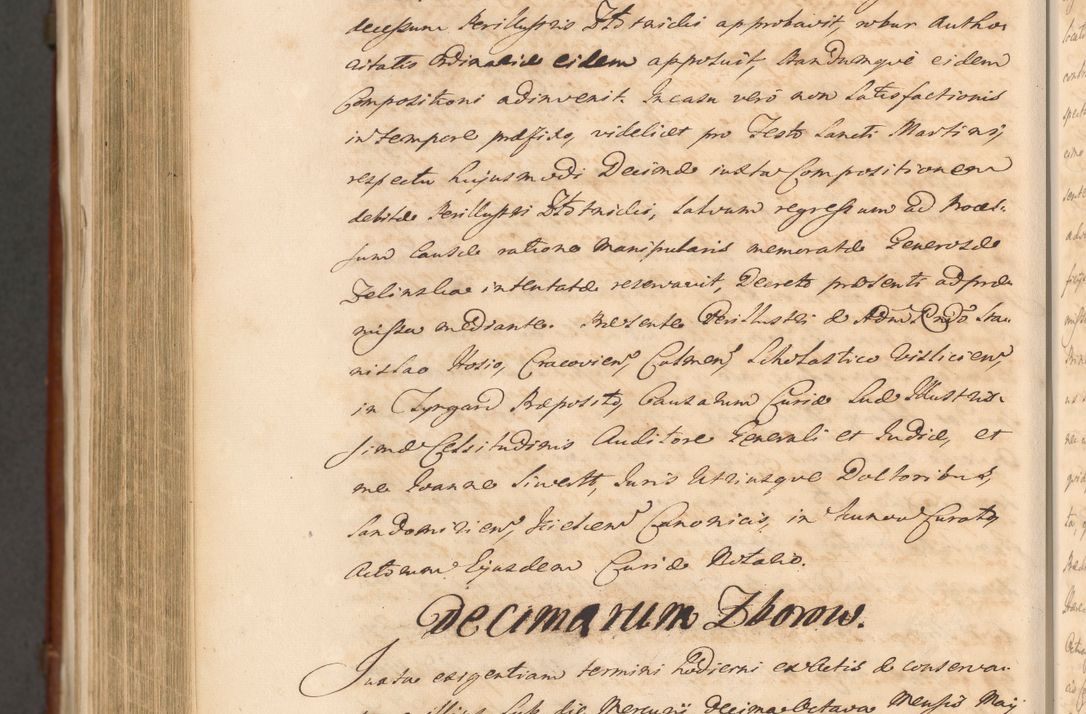 decessum Perillustris Dtōtnidis approbavit, robur Autho-
ritatis Ordinariæ eidem apposuit, standumque eidem
Compositioni adinvenit. In casu verò non Satisfactionis
in tempore præfixo, videlicet pro Festo Sancti Martini,
respectu hujusmodi Decimæ iuxta Compositionem
debitæ Perillustri Dtōtnidis, salvum regressum ad Proces-
sum Causæ ratione Manipularis memoratæ Generosæ
Zelinska intentatæ reservavit, Decreto præsenti ad præ-
missa mediante. Præsente Perillustri & Adm. Rndō Sta-
nislao Hosio, Cracovien, Culmen, Scholastico Vislicien,
in Tyrgard Præposito, Causarum Curiæ Suæ Illustris-
simæ Celsitudinis Auditore Generali et Judice, et
me Joanne Siwestt, Juris Utriusque Doctoribus,
Sandomirien, Kielcen Canonicis, in Kunow Curato,
Actorum Ejusdem Curiæ Notario.
Decimarum Zborow.
Juxta exigentiam termini hodierni ex Actis & conserva-
Sub die Mercurij decima Octava Mensis Maij